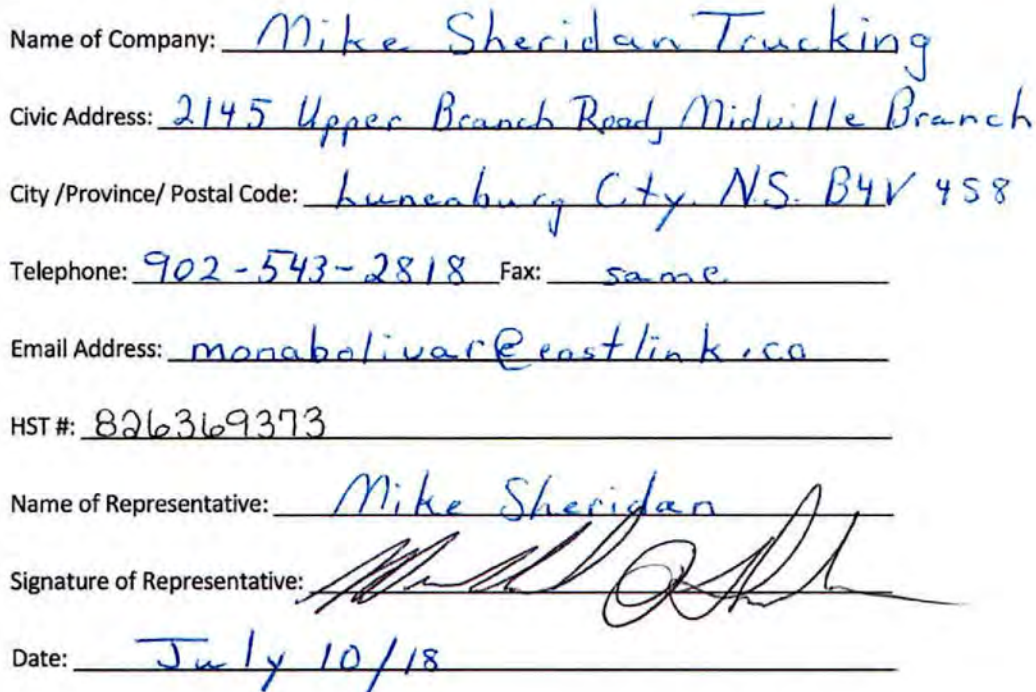 Name of Company: Mike Sheridan Trucking
Civic Address: 2145 Upper Branch Road, Midville Branch
City /Province/ Postal Code: Lunenburg Cty. N.S. B4V 4S8
Telephone: 902-543-2818 Fax: same
Email Address: monabolivar@eastlink.ca
HST #: 826369373
Name of Representative: Mike Sheridan
Signature of Representative:
Date: July 10/18